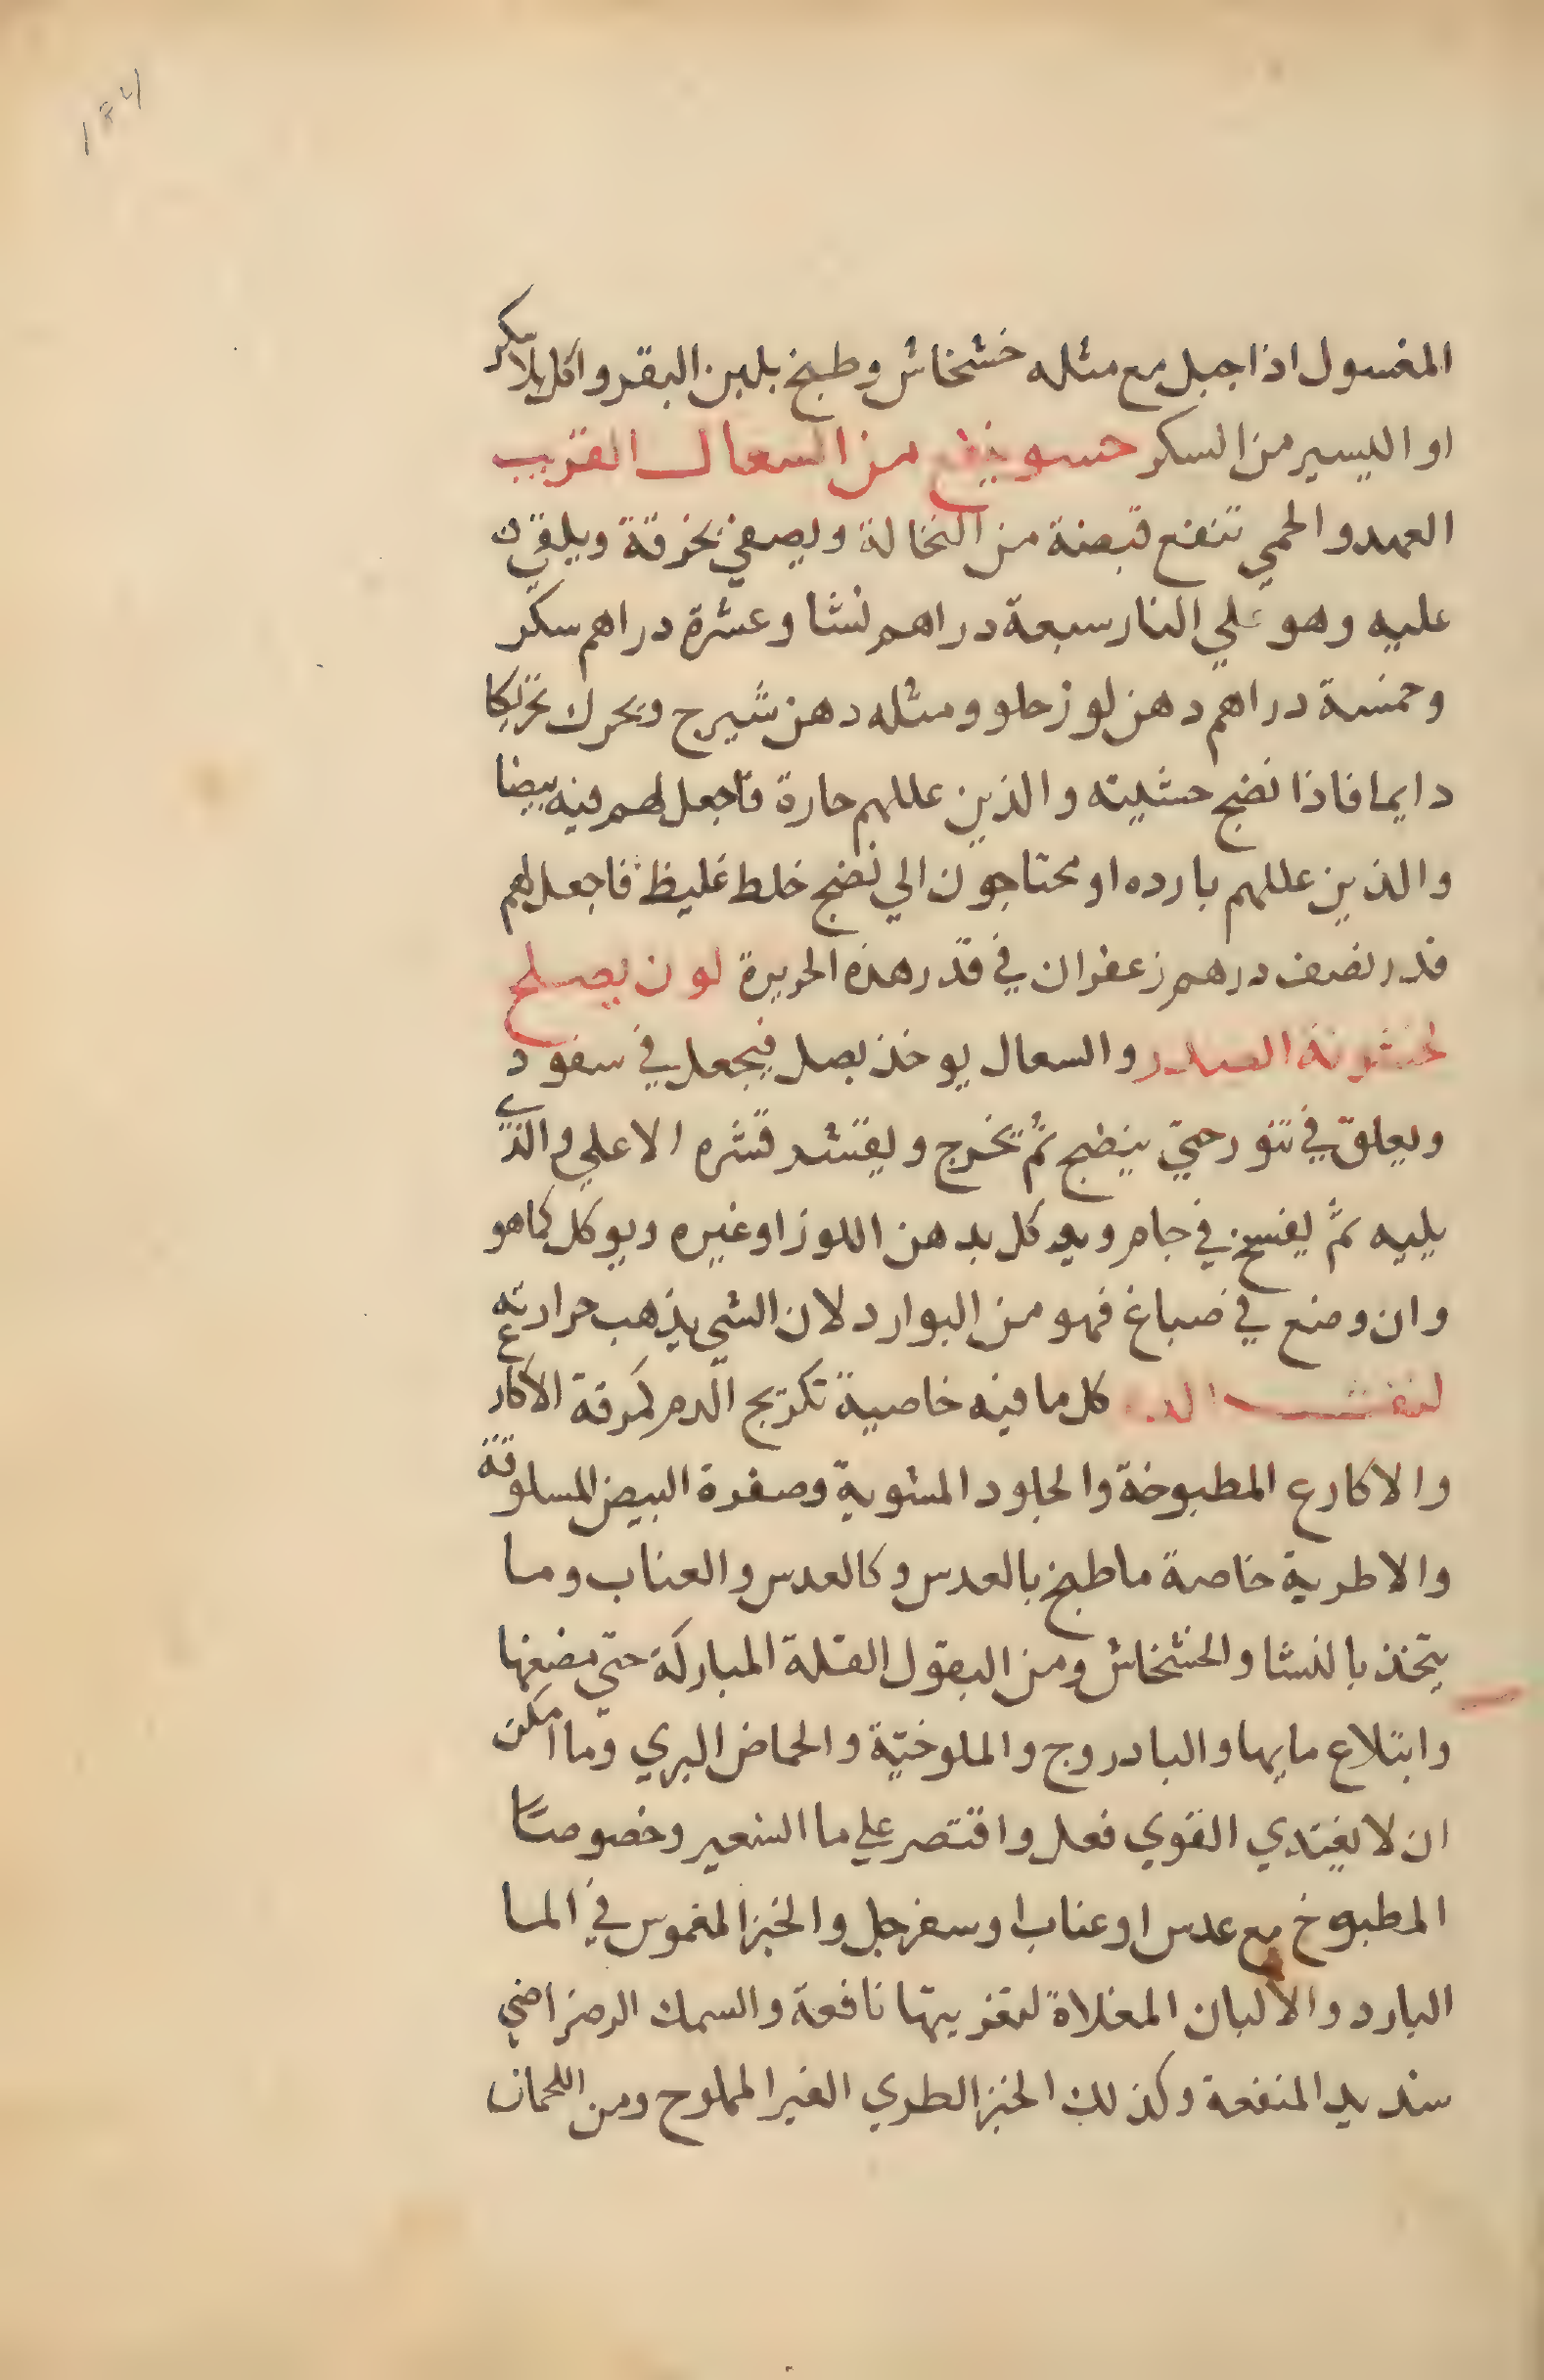 المغسول اذا جبل مع مثله خشخاش وطبخ بلبن البقر واكل بلا سكر
او اليسير من السكر حسو ينفع من السعال القريب
العهد والحمي تنقع قبضة من النخالة ويصفي بخرقة ويلقي
عليه وهو علي النار سبعة دراهم نشا وعشرة دراهم سكر
وخمسة دراهم دهن لوز حلو ومثله دهن شيرج ويحرك تحريكا
دايما فاذا نضج حسيته والذين عللهم حارة فاجعل لهم فيه بيضا
والذين عللهم بارده او محتاجون الي نضج خلط غليظ فاجعل لهم
قدر نصف درهم زعفران في قدر هذه الحريرة لون يصلح
لخشونة الصدر والسعال يوخذ بصل فيجعل في سفود
ويعلق في تنور حتي ينضج ثم يخرج ويقشر قشره الاعلي والذي
يليه ثم يفسخ في جام ويوكل بدهن اللوز او غيره ويوكل كما هو
وان وضع في صباغ فهو من البوارد لان الشي يذهب حرارته
لنفث الدم كل ما فيه خاصية تكريج الدم كمرقة الاكارع
والاكارع المطبوخة والجلود المشوية وصفرة البيض المسلوقة
والاطرية خاصة ما طبخ بالعدس وكالعدس والعناب وما
يتخذ بالنشا والخشخاش ومن البقول القلة المباركة حتي مضغها
وابتلاع مايها والبادروج والملوخية والحماض البري وما امكن
ان لا يغتدي القوي فعل واقتصر علي ما الشعير وخصوصا
المطبوخ مع عدس او عناب او سفرجل والخبز المغموس في الما
البارد والالبان المغلاة لتغزيتها نافعة والسمك الرضراضي
شديد المنفعة وكذلك الخبز الطري الغير المملوح ومن اللحمان